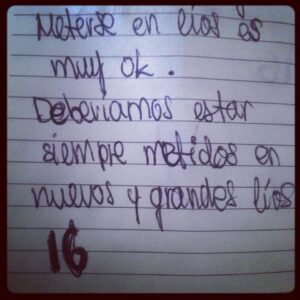 Meterse en líos es
muy ok.
Deberíamos estar
siempre metidos en
nuevos y grandes líos
16